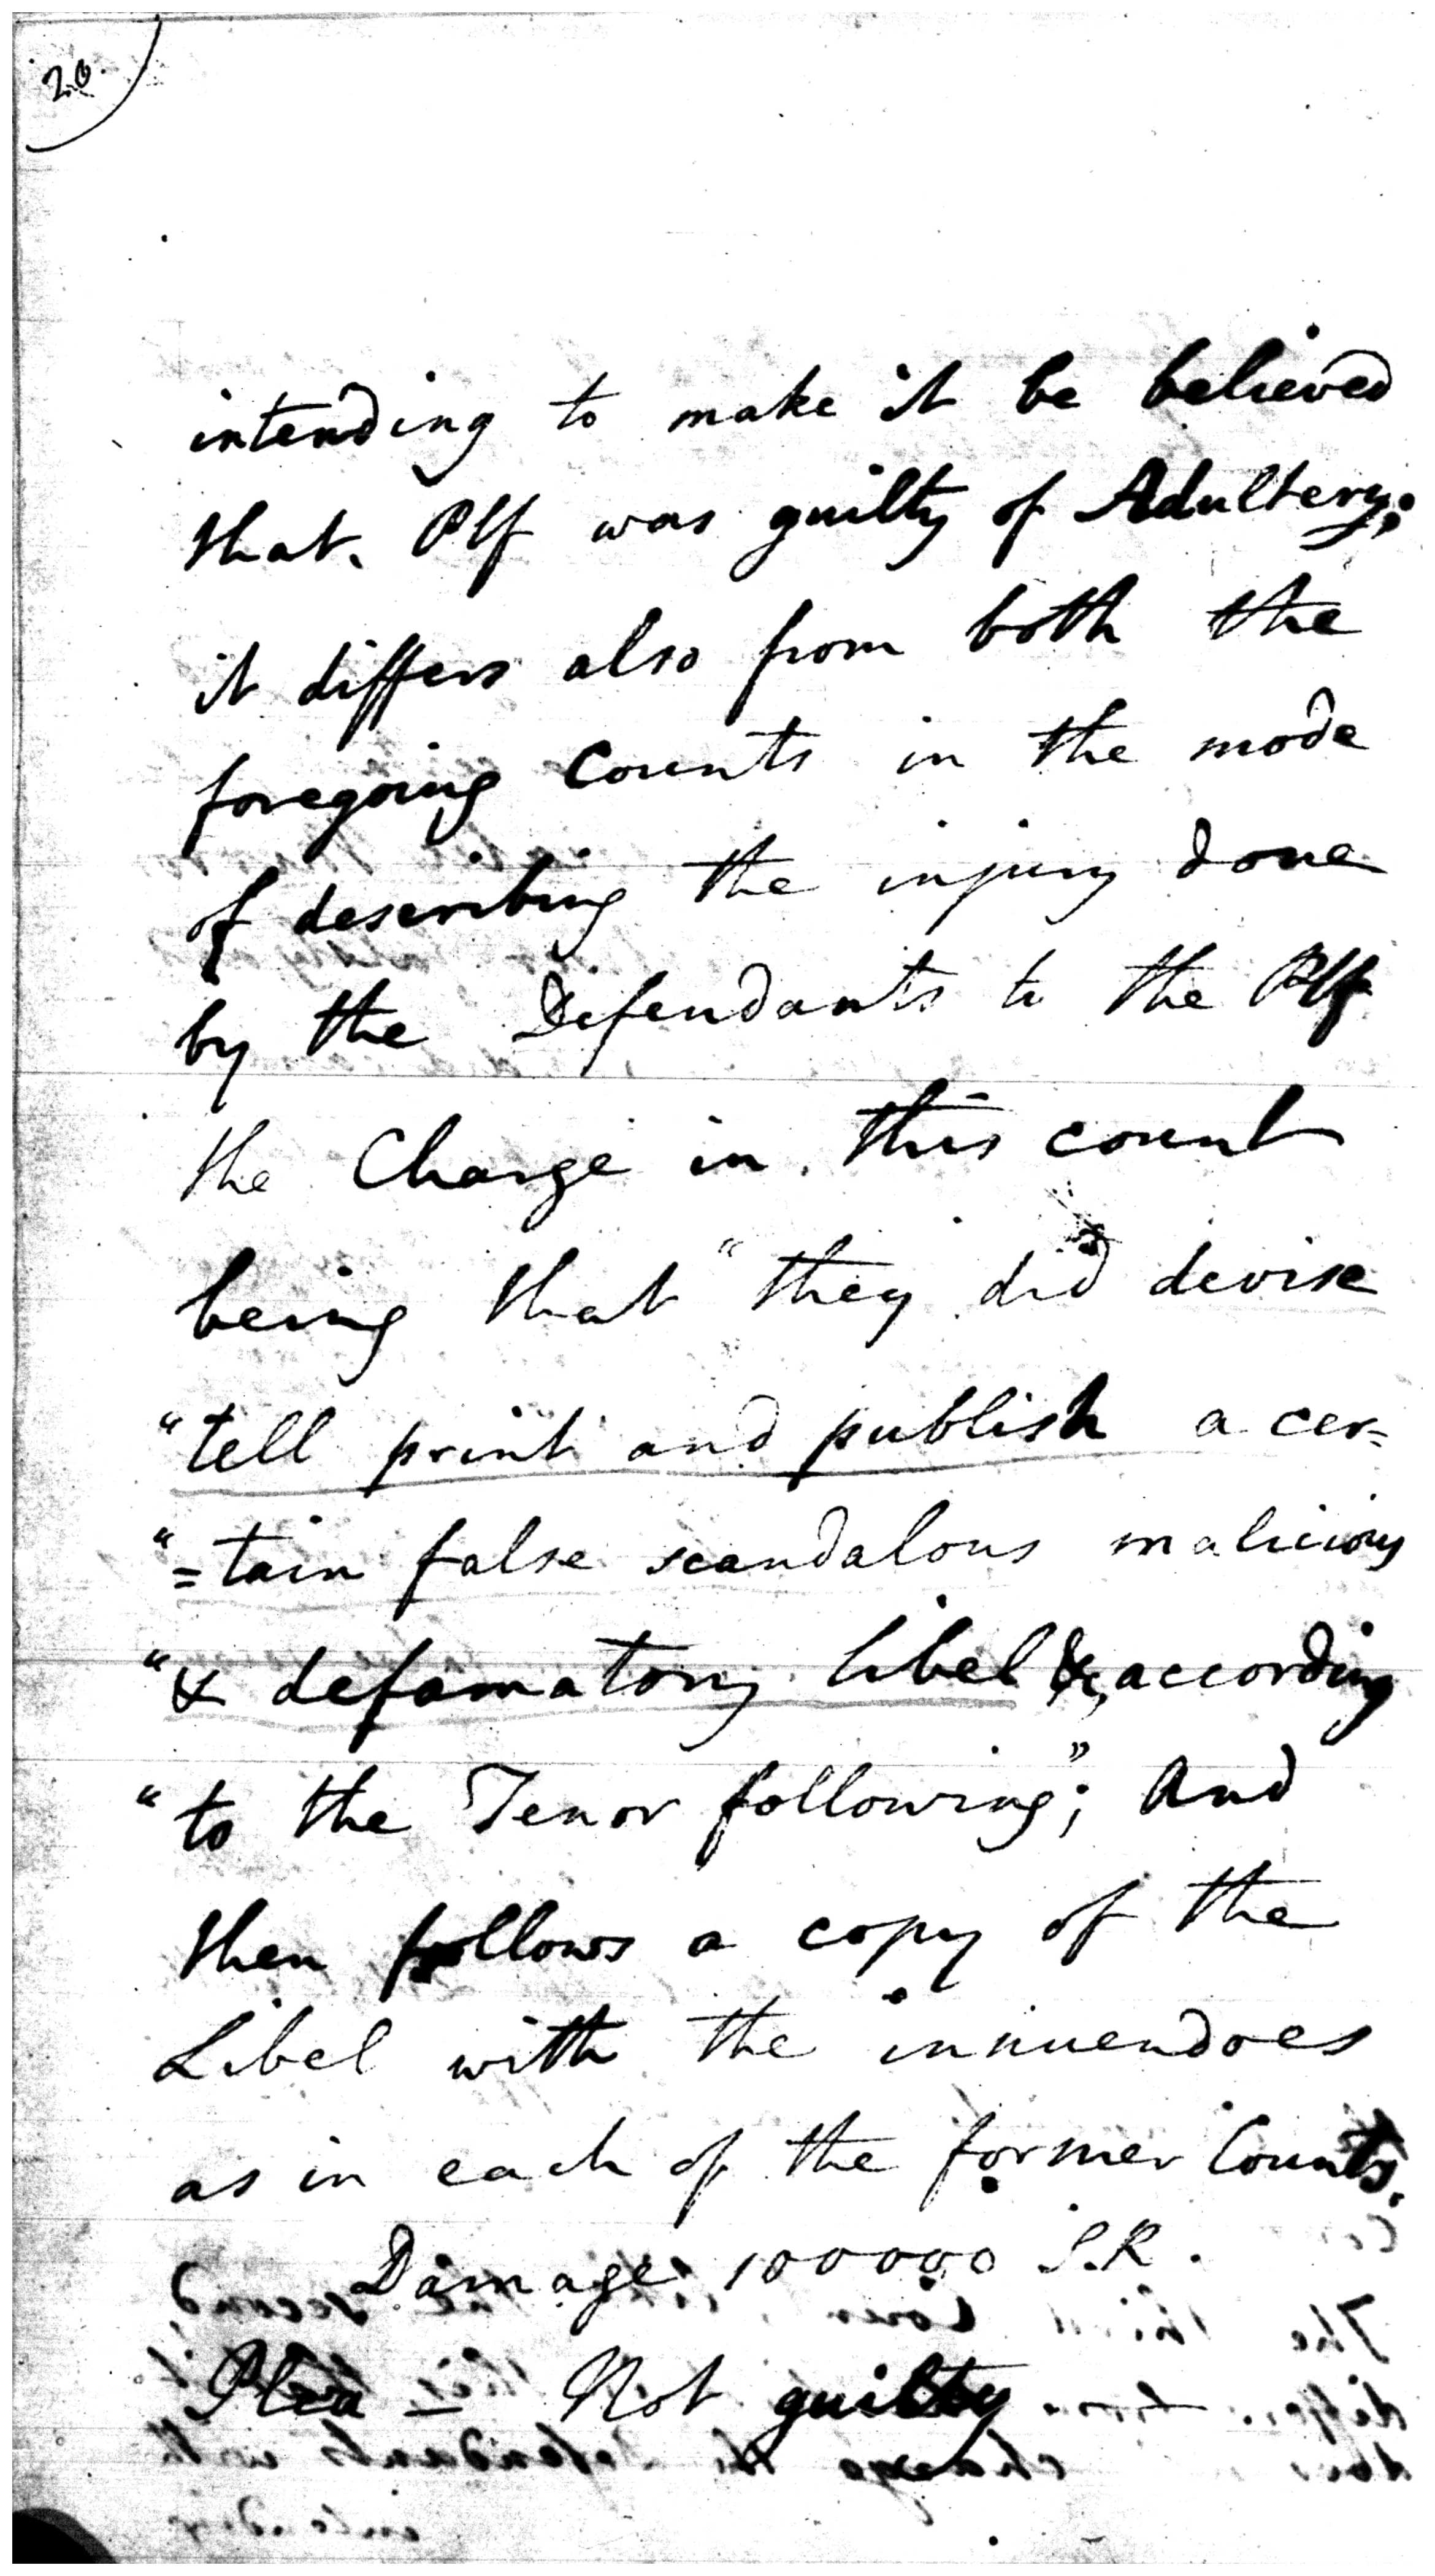 20.
intending to make it be believed
that. Plf was guilty of Adultery;
it differs also from both the
foregoing Counts in the mode
of describing the injury done
by the Defendants to the Plf
the Charge in this count
being that "they did devise
"tell print and publish a cer=
"=tain false scandalous malicious
"& defamatory libel &c, according
"to the Tenor following"; And
then follows a copy of the
Libel with the innuendoes
as in each of the former Counts.
Damage 100000 S.R.
Plea — Not guilty